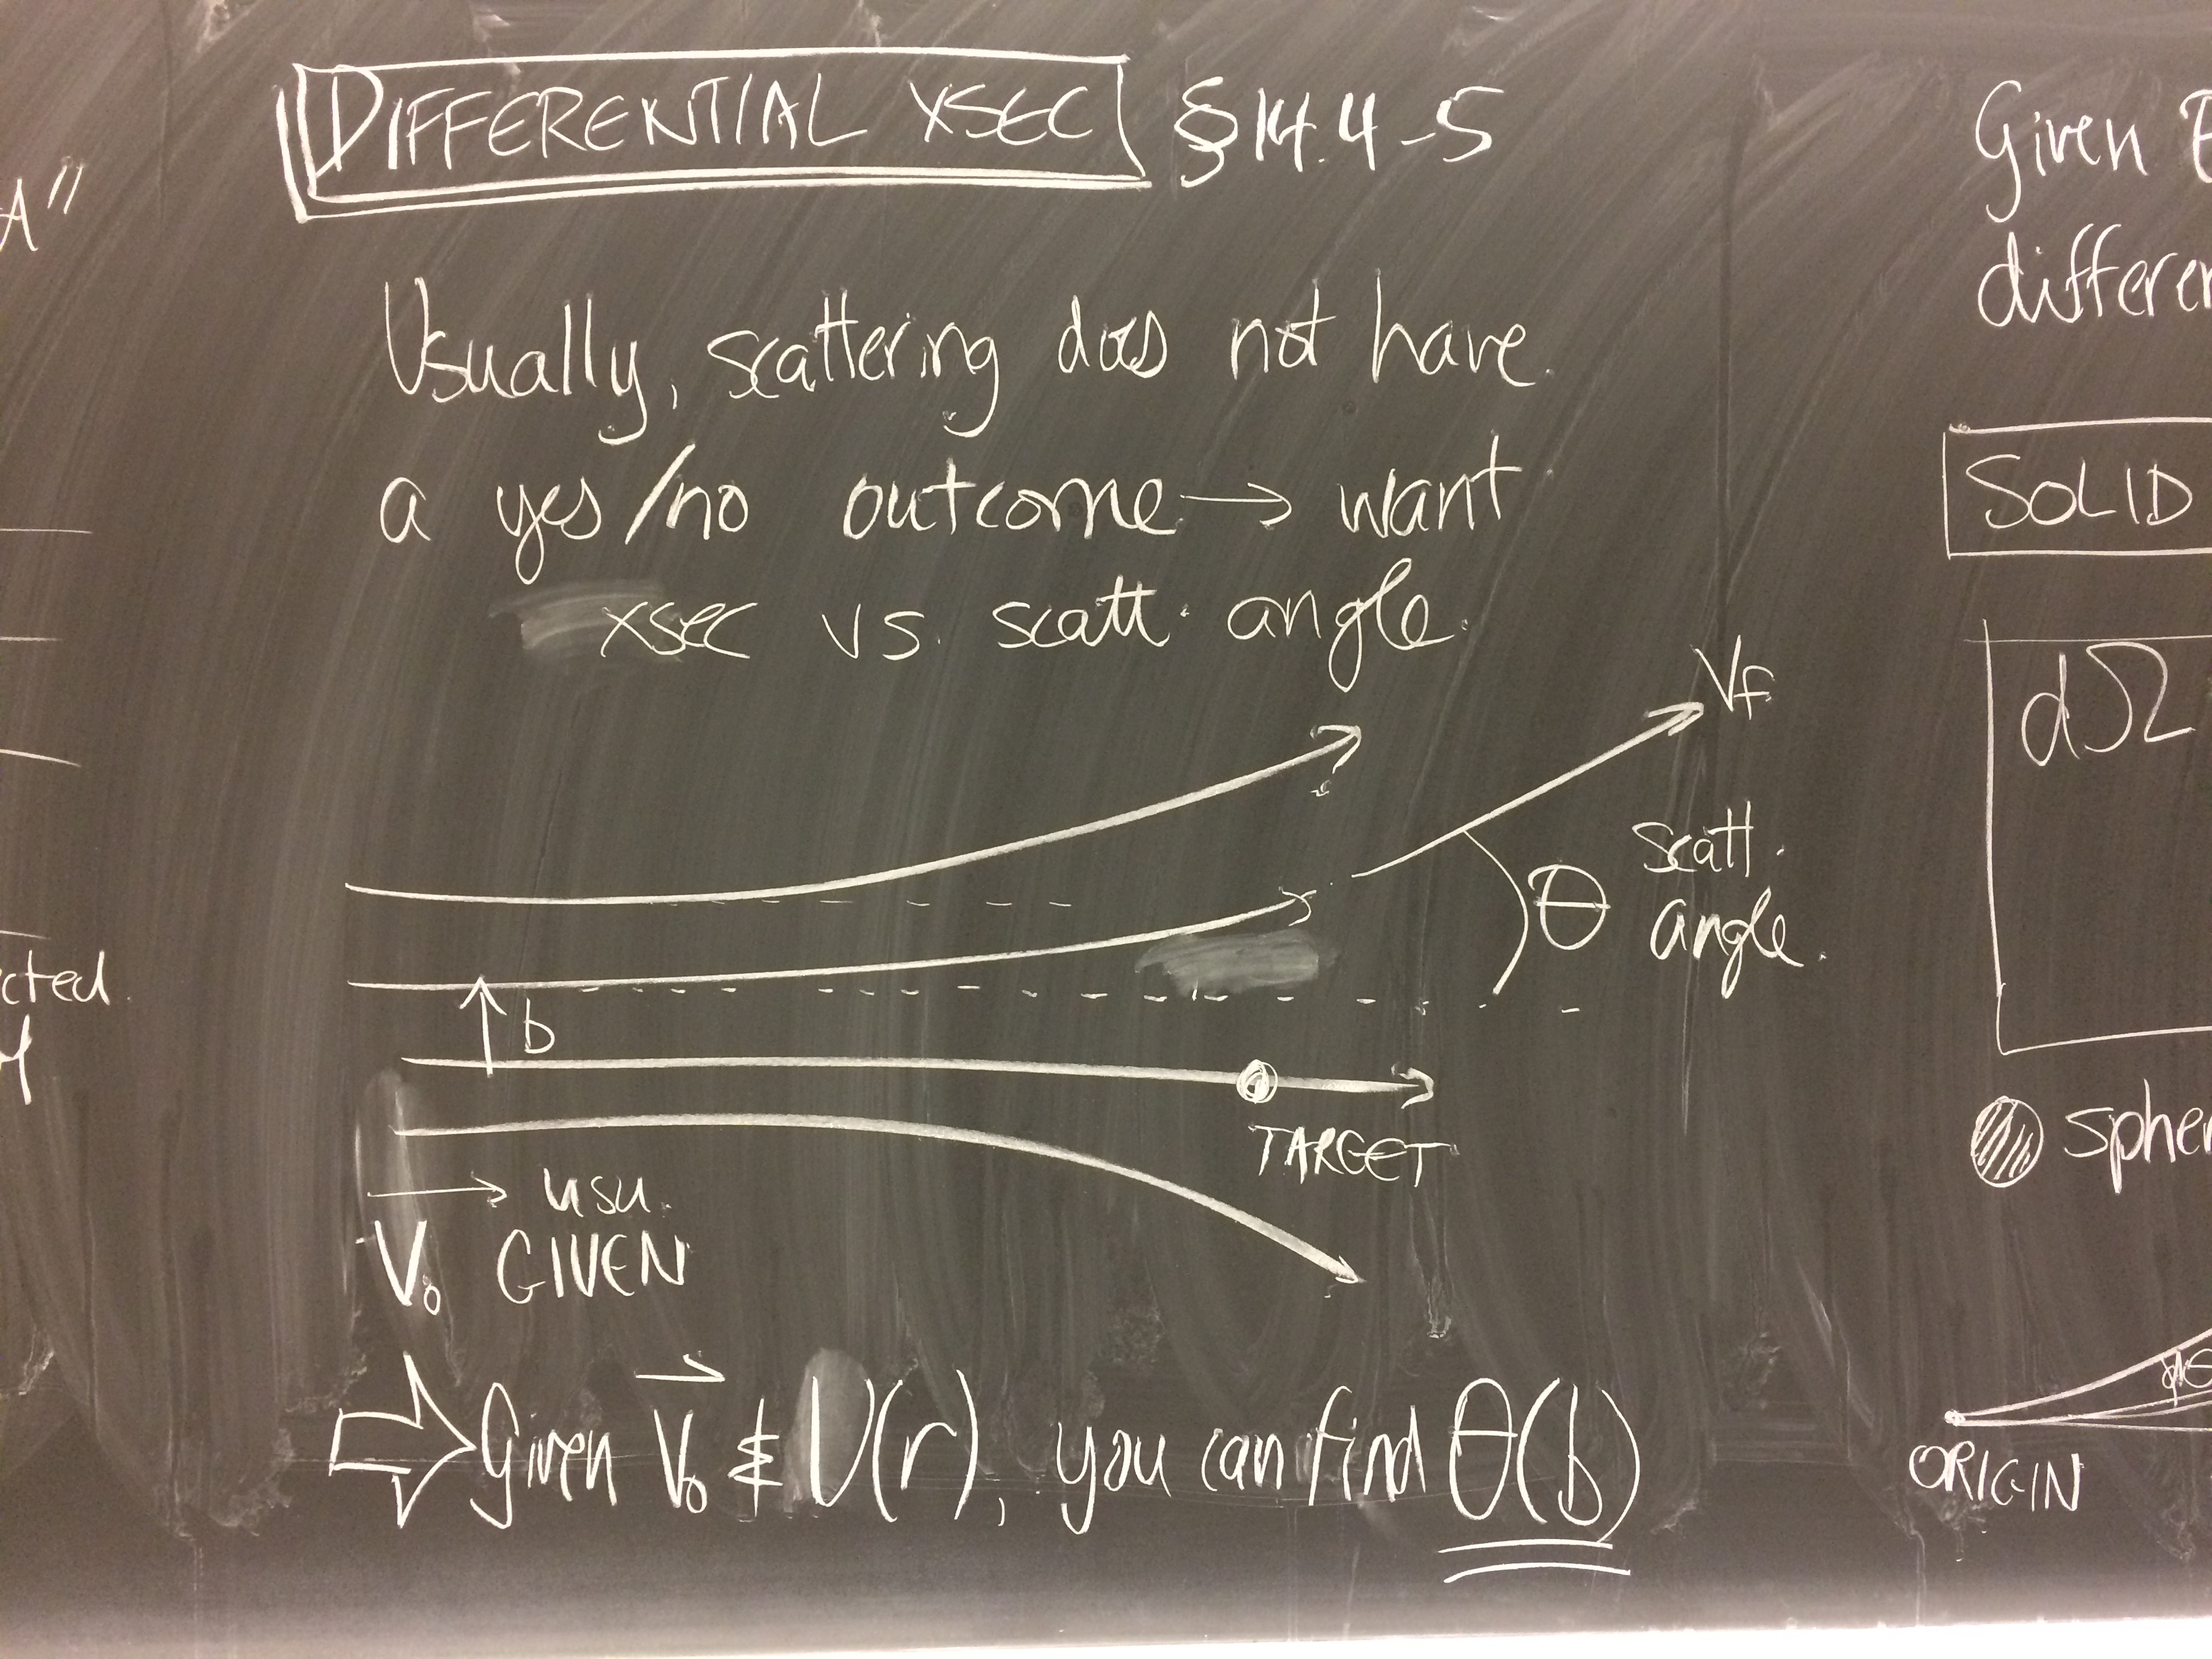 DIFFERENTIAL XSEC §14.4-5
Usually, scattering does not have
a yes/no outcome → want
xsec vs. scatt. angle.
Vf
scatt.
θ angle.
b
TARGET
usu.
V₀ GIVEN
⇒ Given V⃗₀ & U(r), you can find θ(b)
A"
cted
Given
differen
SOLID
dΩ
spher
ORIGIN